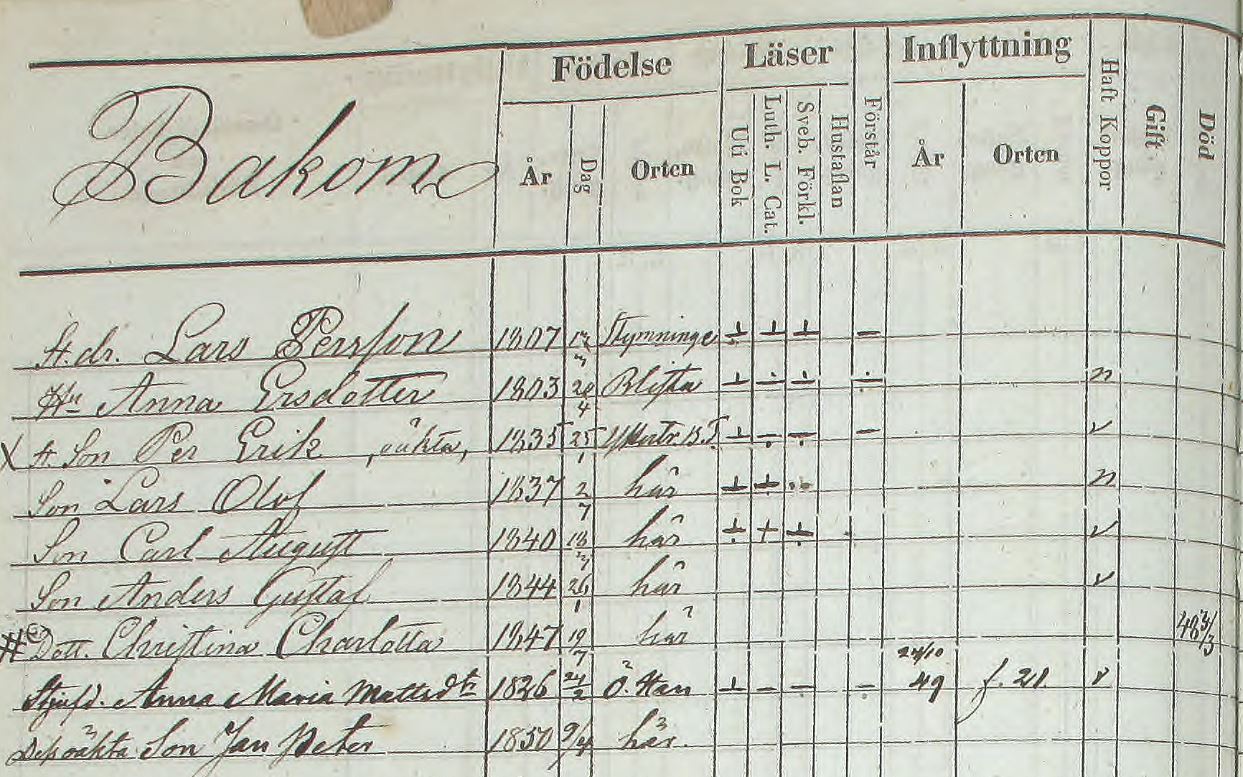 Bakom
Födelse Läser Inflyttning
År Dag Orten Uti Bok Luth. L. Cat. Sveb. Förkl. Hustaflan Förstår År Orten Haft Koppor Gift Död
St.dr. Lars Persson 1807 Skymninge
Hu Anna Ersdotter 1803 Blista n
X Son Per Erik, oäkta, 1835 25 v
Son Lars Olof 1837 2/7 här n
Son Carl August 1840 18 här v
Son Anders Gustaf 1844 26/1 här v
# Dott. Christina Charlotta 1847 19/7 här 48
Stjufd. Anna Maria Mattsdtr 1826 24/2 Ö. Han 24/10 49 f. 21. v
Des oäkta Son Jan Peter 1850 9/4 här.